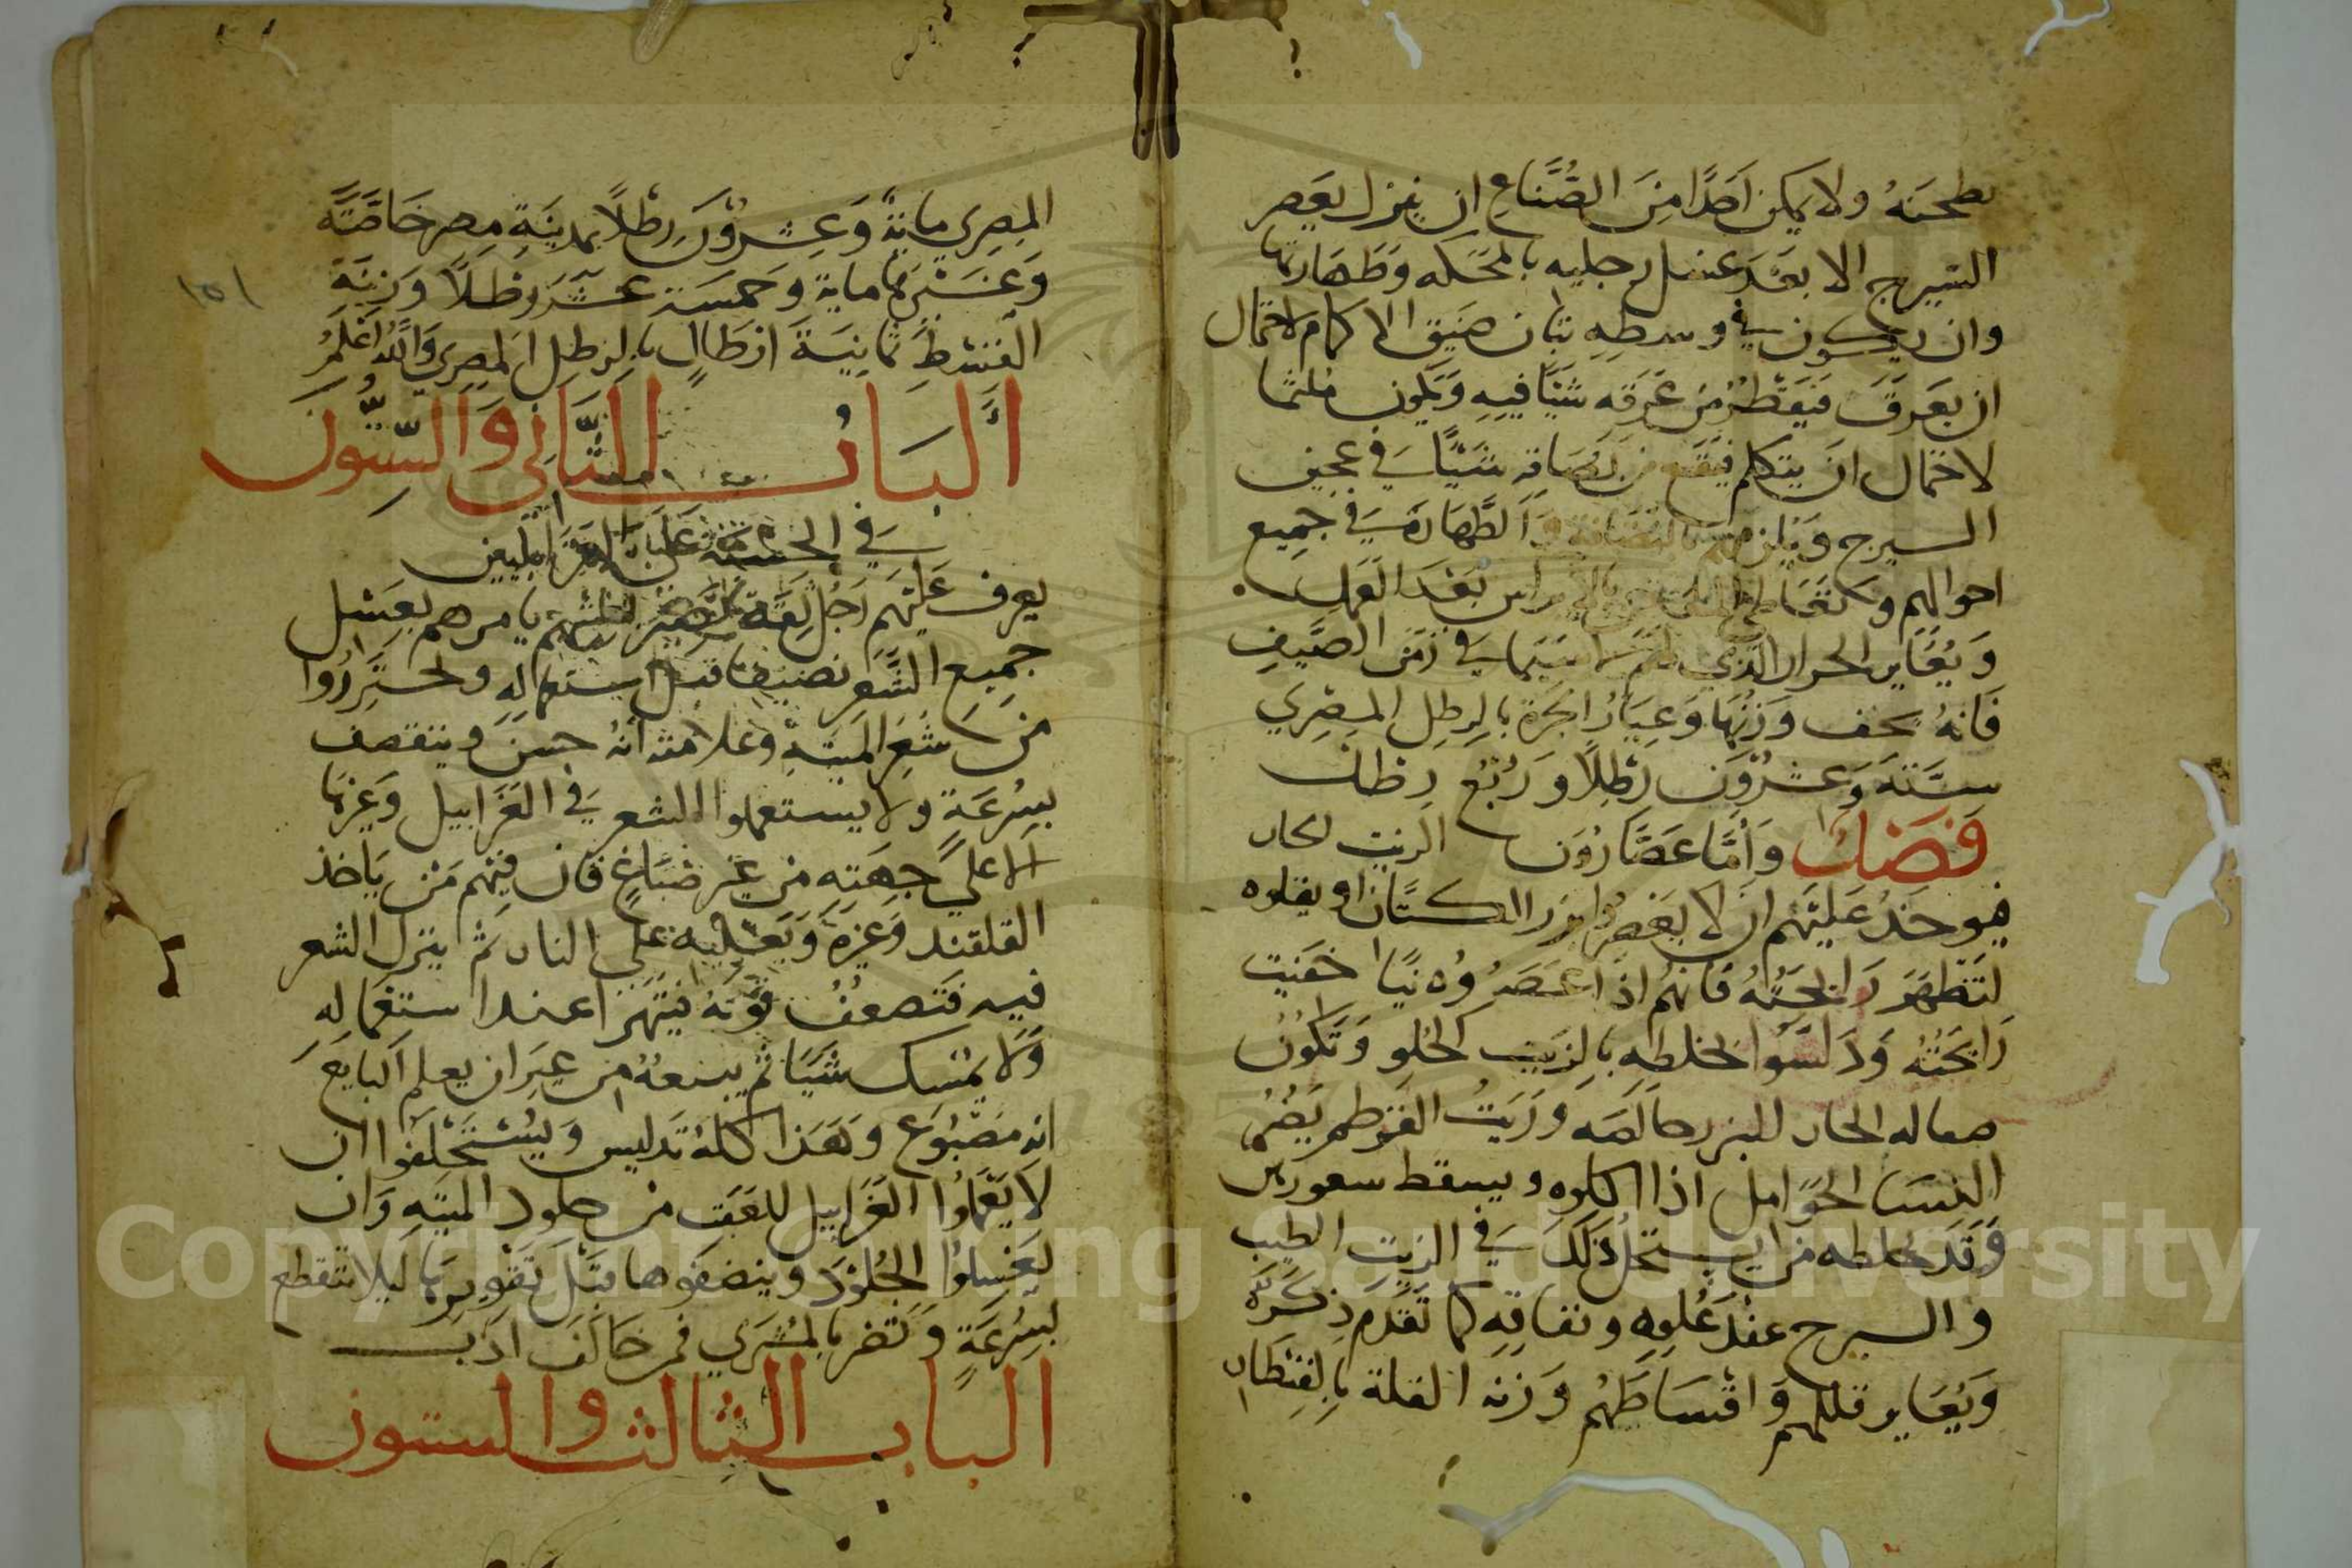 يطحنه ولا يمكن اَحَدًا مِنَ الصُّنَّاعِ ان ينزل يعصر
السيرج الا بعد غسل رجليه بالمحكه وَطَهَارتها
وان يكون في وسطِهِ تبان ضيق الاكمام لاحتمال
ان يَعرَقَ فيَقطُرُ من عَرَقه شَيئًا فيهِ وَيكون ملثما
لاحتمال ان يتكلم فيقع من بُصَاقه شيئًا في عجين
السيرج وَيلزمهم بالنظافة وَالطَّهَارة في جميع
احوالهم وَ بَعْدَ العَمل
وَيُعَاير الجرار الذي لهم لا سيما في زمن الصَّيفِ
فَانهُ يخف وَزنُهَا وَعِيَارُ الجرة بالرطل المصرِي
ستَّة وَعشرُون رَطلًا وَرُبُع رطل
فَصْل وَأمَّا عَصَّارُون الزيت الحار
فيوخَذُ عَليهُم ان لا يَعصُروا بزر الكتان او يقلوه
لتَظهَر رَايحَتُهُ فَانهُم اذا عَصَرُوه نيًا خفيت
رَايحَتُه وَدَلسُوا بخلطِهِ بالزيت الحُلو وَتكُونُ
معاله الحار للبزر وَزيَتُ القرطم يَضُر
النسَا الحوَامل اذا اكلوه ويسقط
وَقَد يخلطه من يستحل ذلكَ في الزيت الطيب
والسيرج عندَ غُلوِهِ ونفاقِهِ كما تقَدَّم ذِكرَهُ
وَيُعَاير قللهم وَاقسَاطَهُم وَزنه القلة بالقنطار
١٥١
المِصري مايةً وَعشرُون رطلًا بمدينَةِ مِصر خَاصَّتَّه
وَعَن غيرهَا ماية وخمسة عشر رطلًا وَزِنَة
القِسْطِ ثَمانِيَة ارْطَالٍ بالرطِل المصري وَاللهُ اَعْلَمُ
اَلْبَابُ الثَّانِي وَالسِّتُّون
في الحسبة عَلى الغَرَابليين
يعرف عليهم رَجُل ثِقَة يامرهم بغسل
جَمِيع الشَّعر نضيفا قبل استعمالِه ولحترزُوا
من شَعَر الميتةِ وعلامته انهُ خشن وينقصف
بسُرْعَةٍ ولا يستعملوا الشعر في الغَرابيل وَغيرها
الا علي جِهَتِه من غير صبَاغ فان فيهم مَن يَاخذ
القلقند وَغيره وَيَغليه علي النار ثم ينزل الشعر
فيه فَتَضعُفُ قوَّتهُ فَيتهرَا عند استعْمَالِه
وَلا يمْسك شيًا ثم يبيعهُ من غير ان يعلم البايع
انه مَصْبُوغ وَهَذا كلهُ تَدليس وَيُسْتَحْلَفُوا ان
لا يَعْمَلُوا الغَرابيل للقب من جلود الميتهِ وَان
يَغسِلوا الجُلوْد وينضفوها قبَل تَقويرِهَا ليلا تتقطع
بسُرْعَةٍ وَتضر بالمُشترَي فمن خَالفَ ادّب
الباب الثالث والستون
Copyright © King Saud University